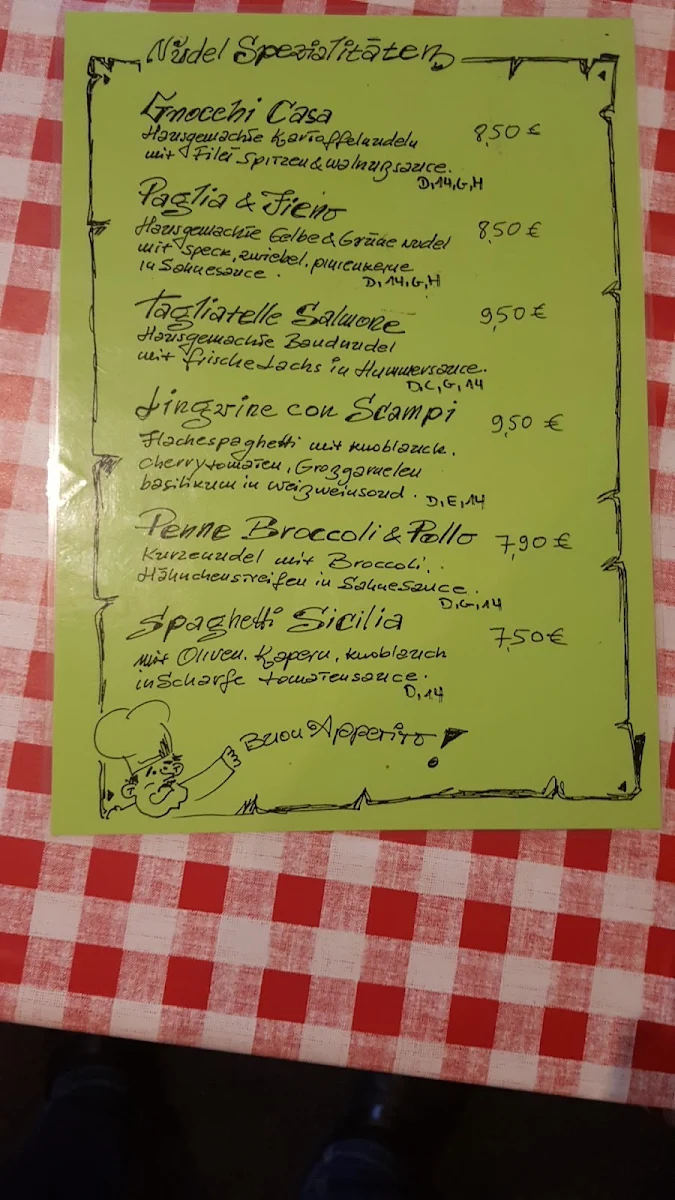 Nüdel Spezialitäten
Gnocchi Casa
Hausgemachte Kartoffelnudeln 8,50 €
mit Filet Spitzen & Walnußsauce.
D,14,G,H
Paglia & Fieno
Hausgemachte Gelbe & Grüne nudel 8,50 €
mit Speck, zwiebel, pinienkerne
in Sahnesauce.
D,14,G,H
Tagliatelle Salmone 9,50 €
Hausgemachte Bandnudel
mit frische Lachs in Hummersauce.
D,C,G,14
Lingvine con Scampi 9,50 €
Flachespaghetti mit knoblauch,
cherrytomaten, Großgarnelen
basilikum in weißweinsoud.
D,E,14
Penne Broccoli & Pollo 7,90 €
Kurzenudel mit Broccoli,
Hähnchenstreifen in Sahnesauce.
D,G,14
Spaghetti Sicilia 7,50 €
mit Oliven, Kapern, knoblauch
in Scharfe tomatensauce.
D,14
Buon Appetito!